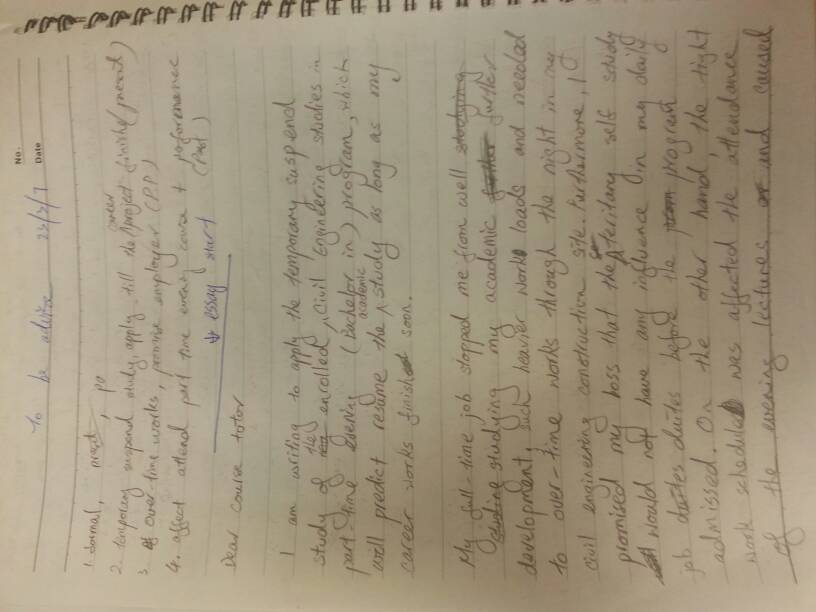 No.
Date
To be advise 23/3/17
1. formal, pract, po
2. temporary suspend study, apply till the career project finishe (present)
3. over time works, promise employer (P.P)
4. affect attend part time evening course & performance (Past)
↓ essay start
Dear course tutor
I am writing to apply the temporary suspend
study of the enrolled, Civil Engineering studies in
part-time evening (Bachelor in) program, which
will predict resume the academic study as long as my
career works finished soon.
My full-time job stopped me from well studying
studying my academic further
development, such heavier work loads and needed
to over-time works through the night in my
civil engineering construction site. Furthermore, I
promised my boss that the teritary self study
would not have any influence in my daily
job duites duites before the program
admissed. On the other hand the tight
work schedule was affected the attendance
of the evening lectures and caused